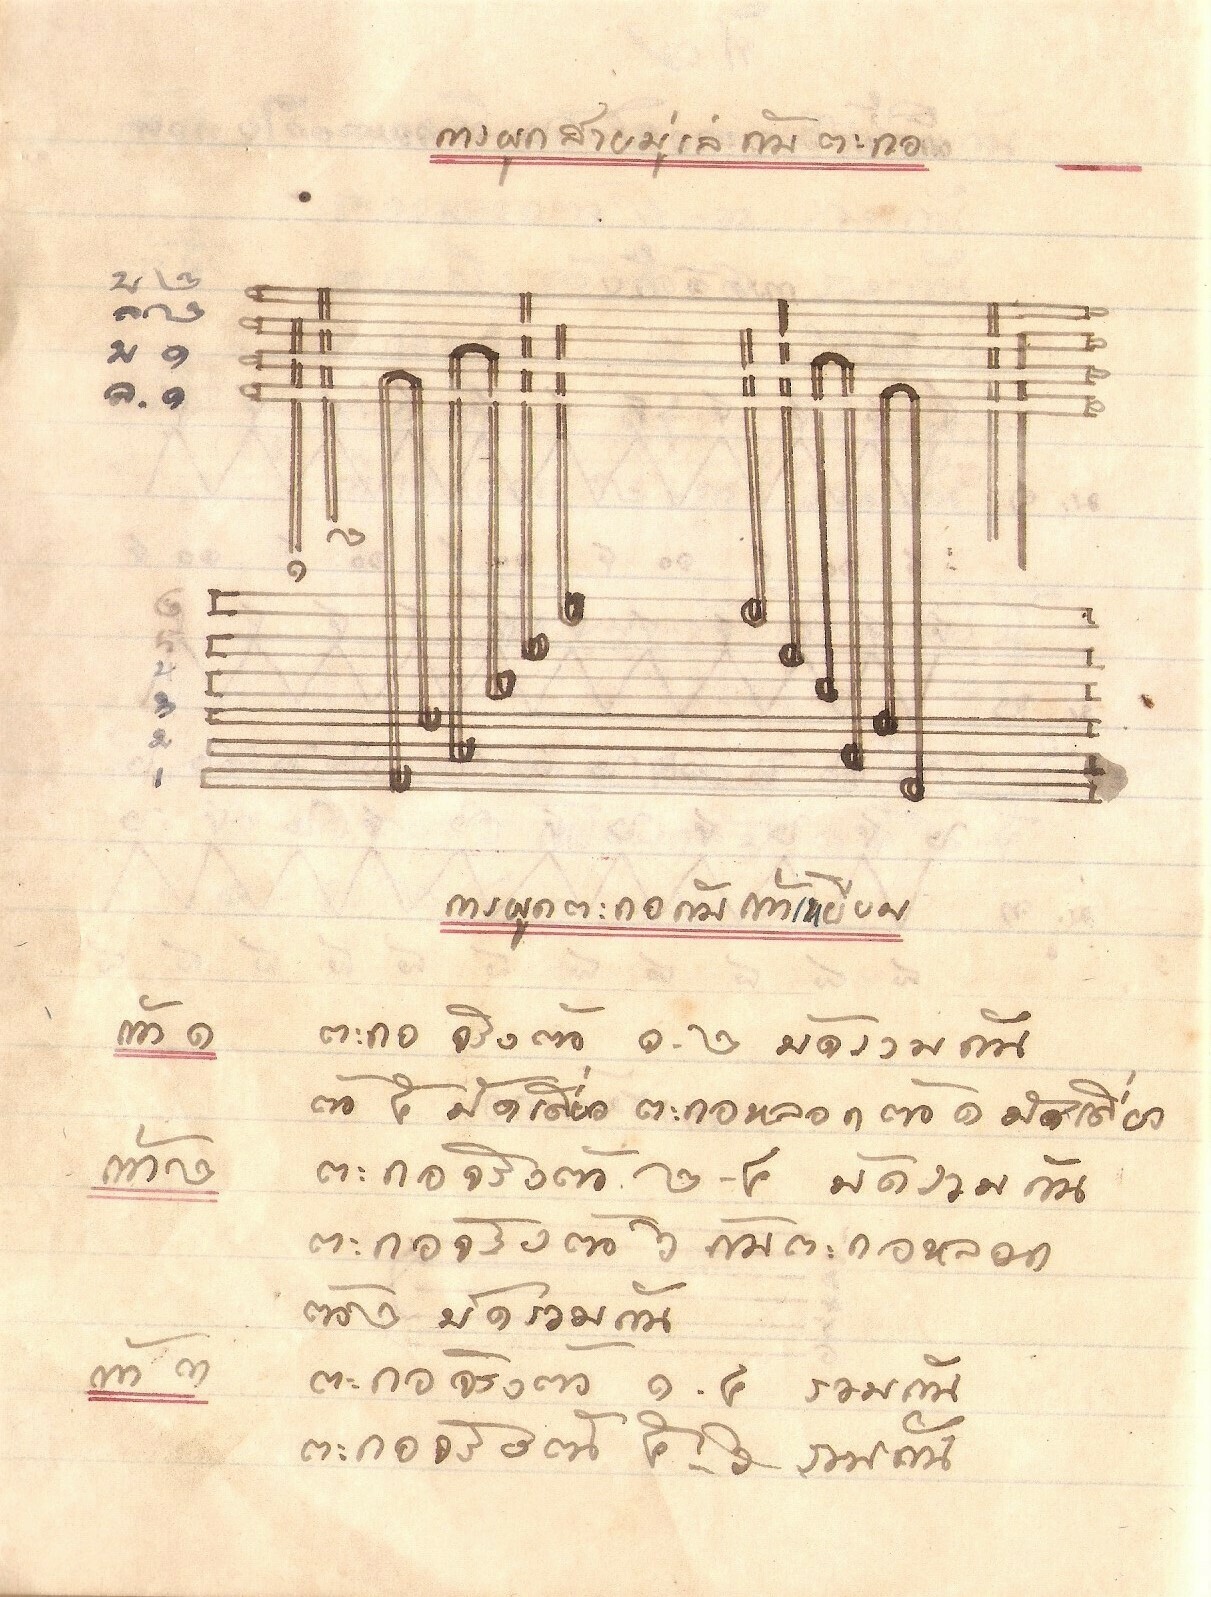 การผูกสายมู่เล่ กับ ตะกอ
บ ๒
ล ๒
บ ๑
ล. ๑
๑ ๒
๖
๕
๔
3
2
1
การผูกตะกอกับ ก้าเหยียบ
ก้า ๑ ตะกอ จริงตัว ๑-๒ มัดรวมกัน
ตัว ๕ มัดเดี่ยว ตะกอหลอกตัว ๑ มัดเดี่ยว
ก้า ๒ ตะกอจริงตัว ๒-๔ มัดรวมกัน
ตะกอจริงตัว ๖ กับตะกอหลอก
ตัว๒ มัดรวมกัน
ก้า ๓ ตะกอจริงตัว ๑-๔ รวมกัน
ตะกอจริงตัว ๕-๖ รวมกัน